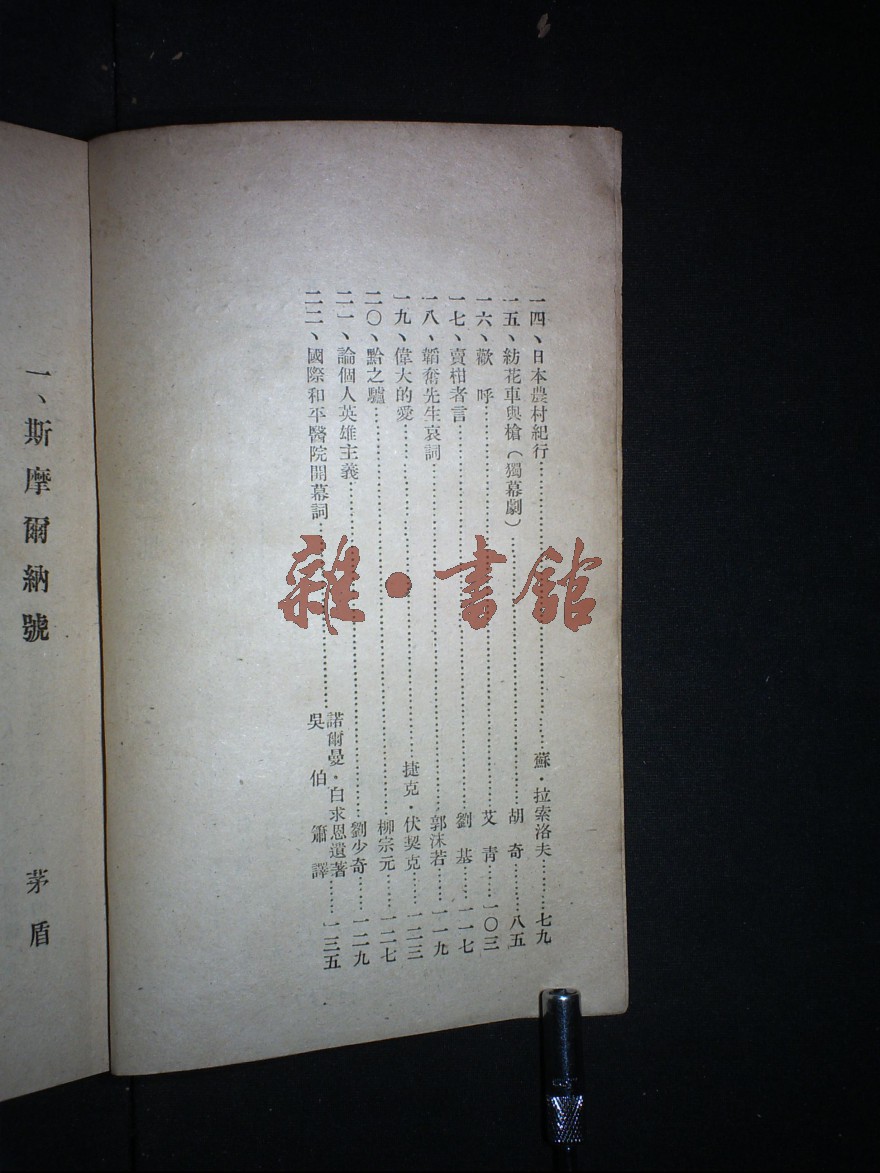 一四、日本農村紀行……蘇·拉索洛夫……七九
一五、紡花車與槍（獨幕劇）……胡奇……八五
一六、歡呼……艾青……一〇三
一七、賣柑者言……劉基……一一七
一八、韜奮先生哀詞……郭沫若……一一九
一九、偉大的愛……捷克·伏契克……一二三
二〇、黔之驢……柳宗元……一二七
二一、論個人英雄主義……劉少奇……一二九
二二、國際和平醫院開幕詞……諾爾曼·白求恩遺著……一三五
吳伯簫譯
一、斯摩爾納號
茅盾
雜·書館